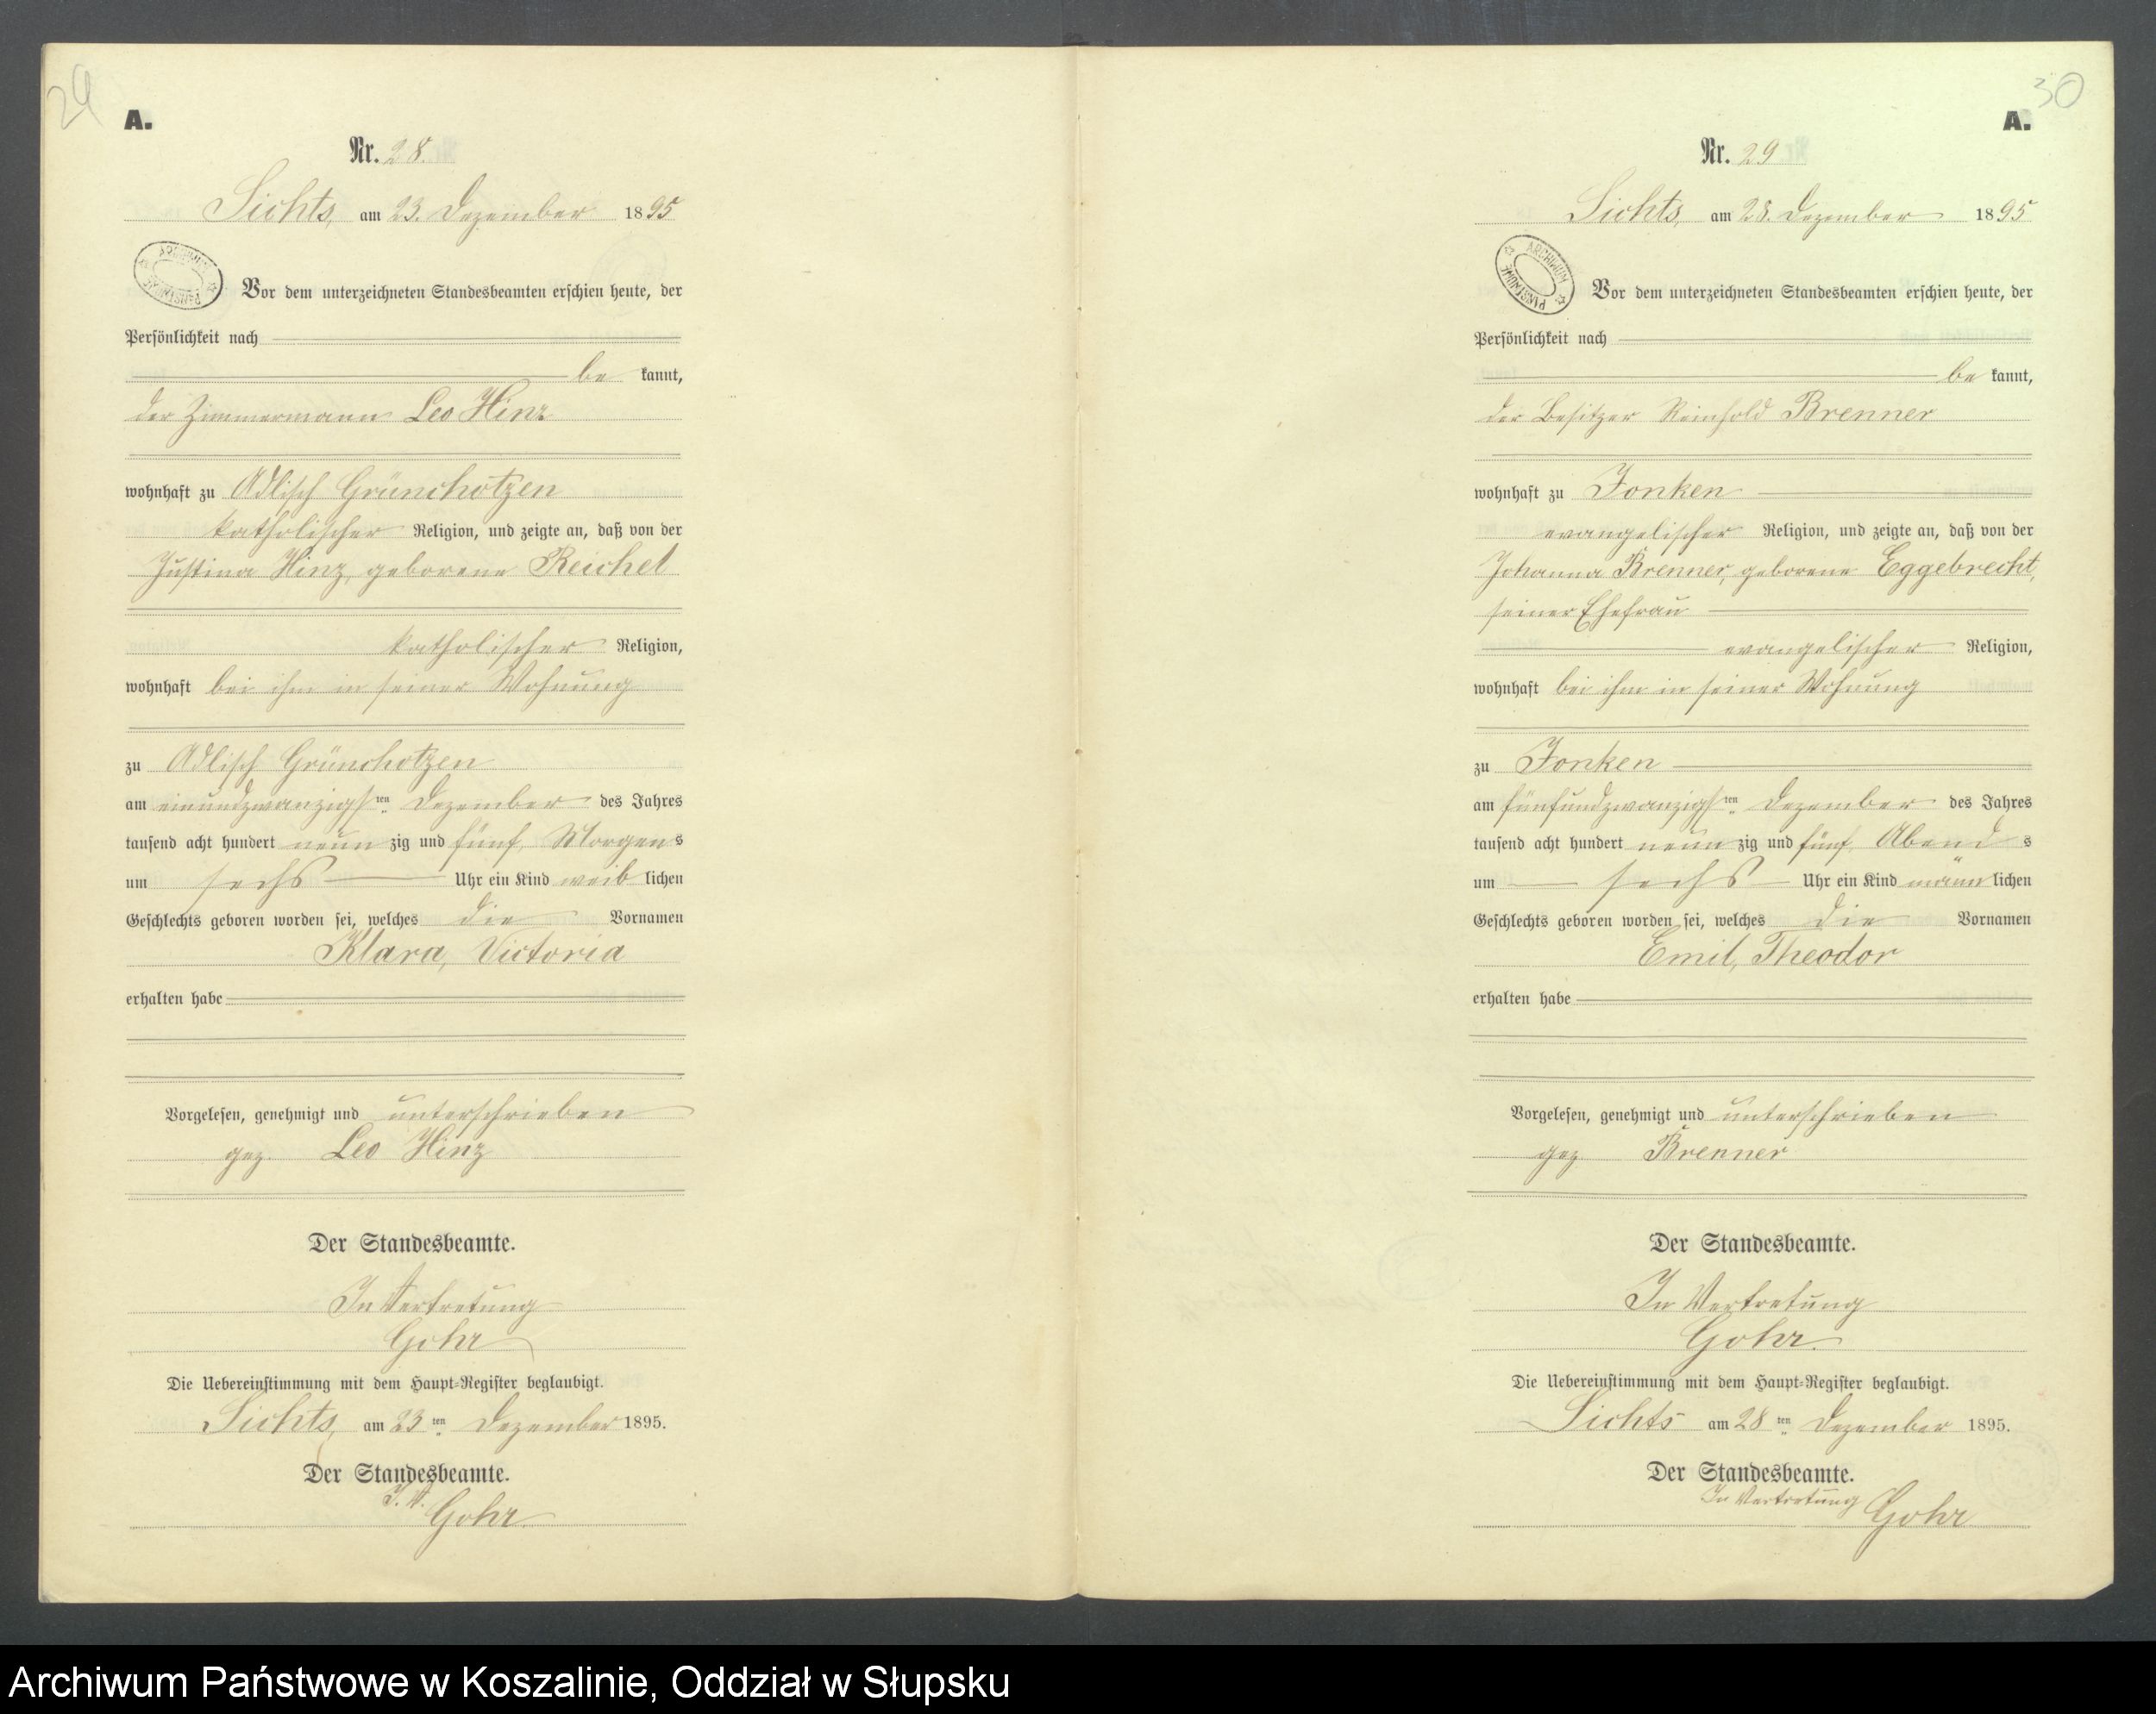 29
A.
Nr. 28.
Sichts, am 23. Dezember 1895
ARCHIWUM PAŃSTWOWE
Vor dem unterzeichneten Standesbeamten erschien heute, der
Persönlichkeit nach
be kannt,
der Zimmermann Leo Hinz
wohnhaft zu Adlisch Grünchotzen
katholischer Religion, und zeigte an, daß von der
Justina Hinz, geborene Reichel
katholischer Religion,
wohnhaft bei ihm in seiner Wohnung
zu Adlisch Grünchotzen
am einundzwanzigsten Dezember des Jahres
tausend acht hundert neun zig und fünf, Morgens
um sechs Uhr ein Kind weib lichen
Geschlechts geboren worden sei, welches die Vornamen
Klara, Victoria
erhalten habe
Vorgelesen, genehmigt und unterschrieben
gez. Leo Hinz
Der Standesbeamte.
In Vertretung
Gohr
Die Uebereinstimmung mit dem Haupt-Register beglaubigt.
Sichts, am 23 ten Dezember 1895.
Der Standesbeamte.
I. V. Gohr
30
A.
Nr. 29
Sichts, am 28. Dezember 1895
ARCHIWUM PAŃSTWOWE
Vor dem unterzeichneten Standesbeamten erschien heute, der
Persönlichkeit nach
be kannt,
der Besitzer Reinhold Brenner
wohnhaft zu Jonken
evangelischer Religion, und zeigte an, daß von der
Johanna Brenner, geborene Eggebrecht,
seiner Ehefrau
evangelischer Religion,
wohnhaft bei ihm in seiner Wohnung
zu Jonken
am fünfundzwanzigsten Dezember des Jahres
tausend acht hundert neun zig und fünf, Abend s
um sechs Uhr ein Kind männ lichen
Geschlechts geboren worden sei, welches die Vornamen
Emil, Theodor
erhalten habe
Vorgelesen, genehmigt und unterschrieben
gez Brenner
Der Standesbeamte.
In Vertretung
Gohr.
Die Uebereinstimmung mit dem Haupt-Register beglaubigt.
Sichts am 28 ten Dezember 1895.
Der Standesbeamte.
In Vertretung Gohr
Archiwum Państwowe w Koszalinie, Oddział w Słupsku